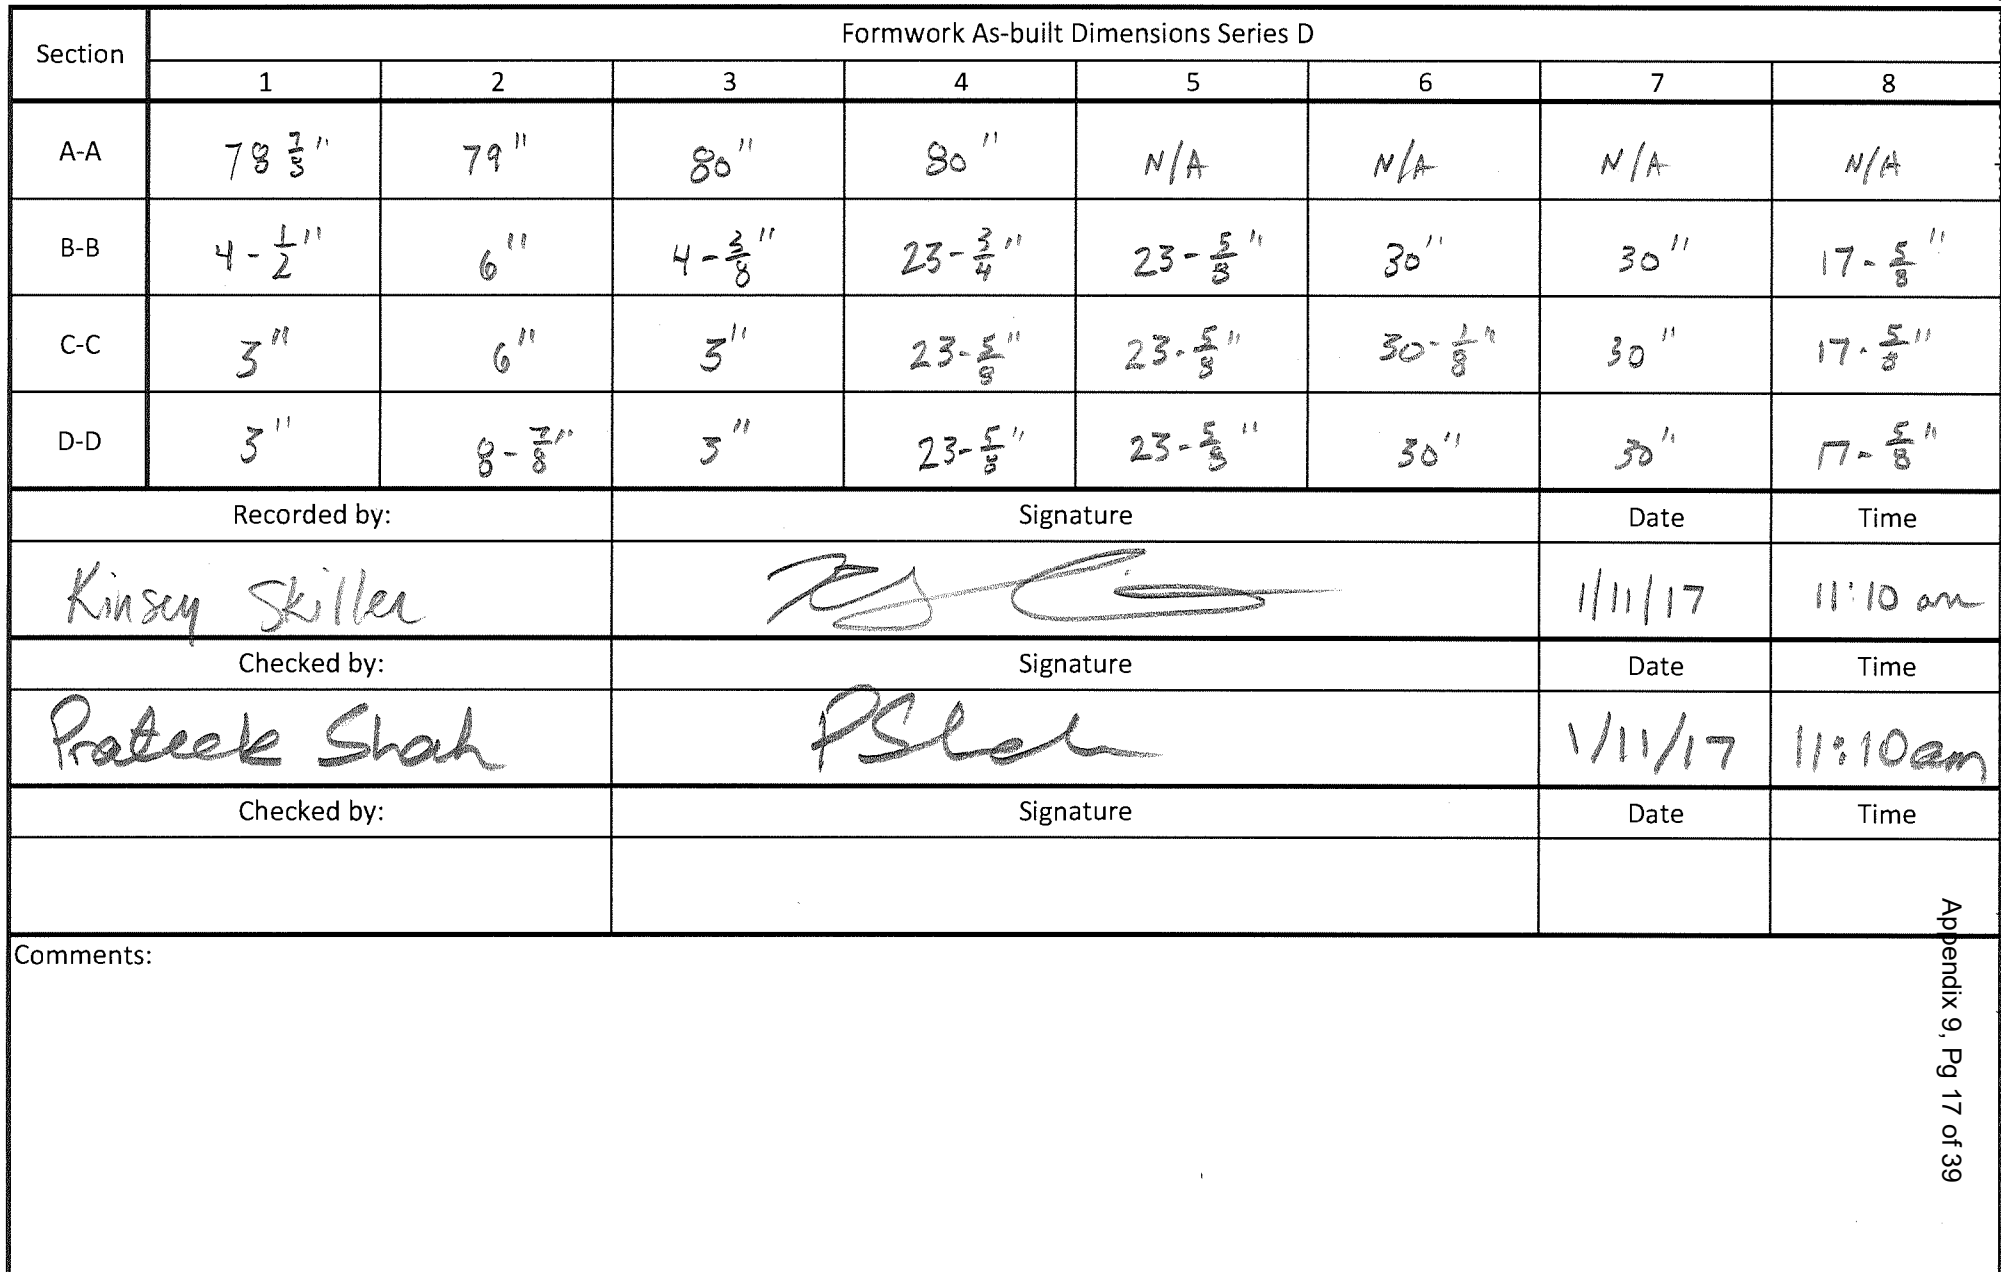 Formwork As-built Dimensions Series D
Section 1 2 3 4 5 6 7 8
A-A 78 7/8" 79" 80" 80" N/A N/A N/A N/A
B-B 4-1/2" 6" 4-3/8" 23-3/4" 23-5/8" 30" 30" 17-5/8"
C-C 3" 6" 3" 23-5/8" 23-5/8" 30-1/8" 30" 17-5/8"
D-D 3" 8-7/8" 3" 23-5/8" 23-5/8" 30" 30" 17-5/8"
Recorded by: Signature Date Time
Kinsey Skiller 1/11/17 11:10 am
Checked by: Signature Date Time
Prateek Shah PShah 1/11/17 11:10am
Checked by: Signature Date Time
Comments:
Appendix 9, Pg 17 of 39